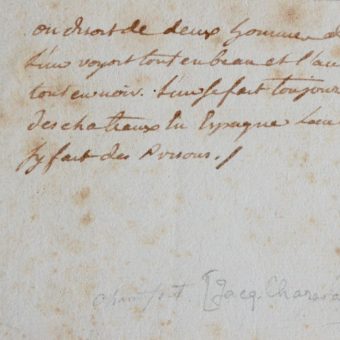 on disoit de deux hommes d
l'un voyoit tout en beau et l'au
tout en noir. l'un se fait toujour
des chateaux En Espagne Lau
sy fait des Prisons. /
chamfort. [Jacq. Charav